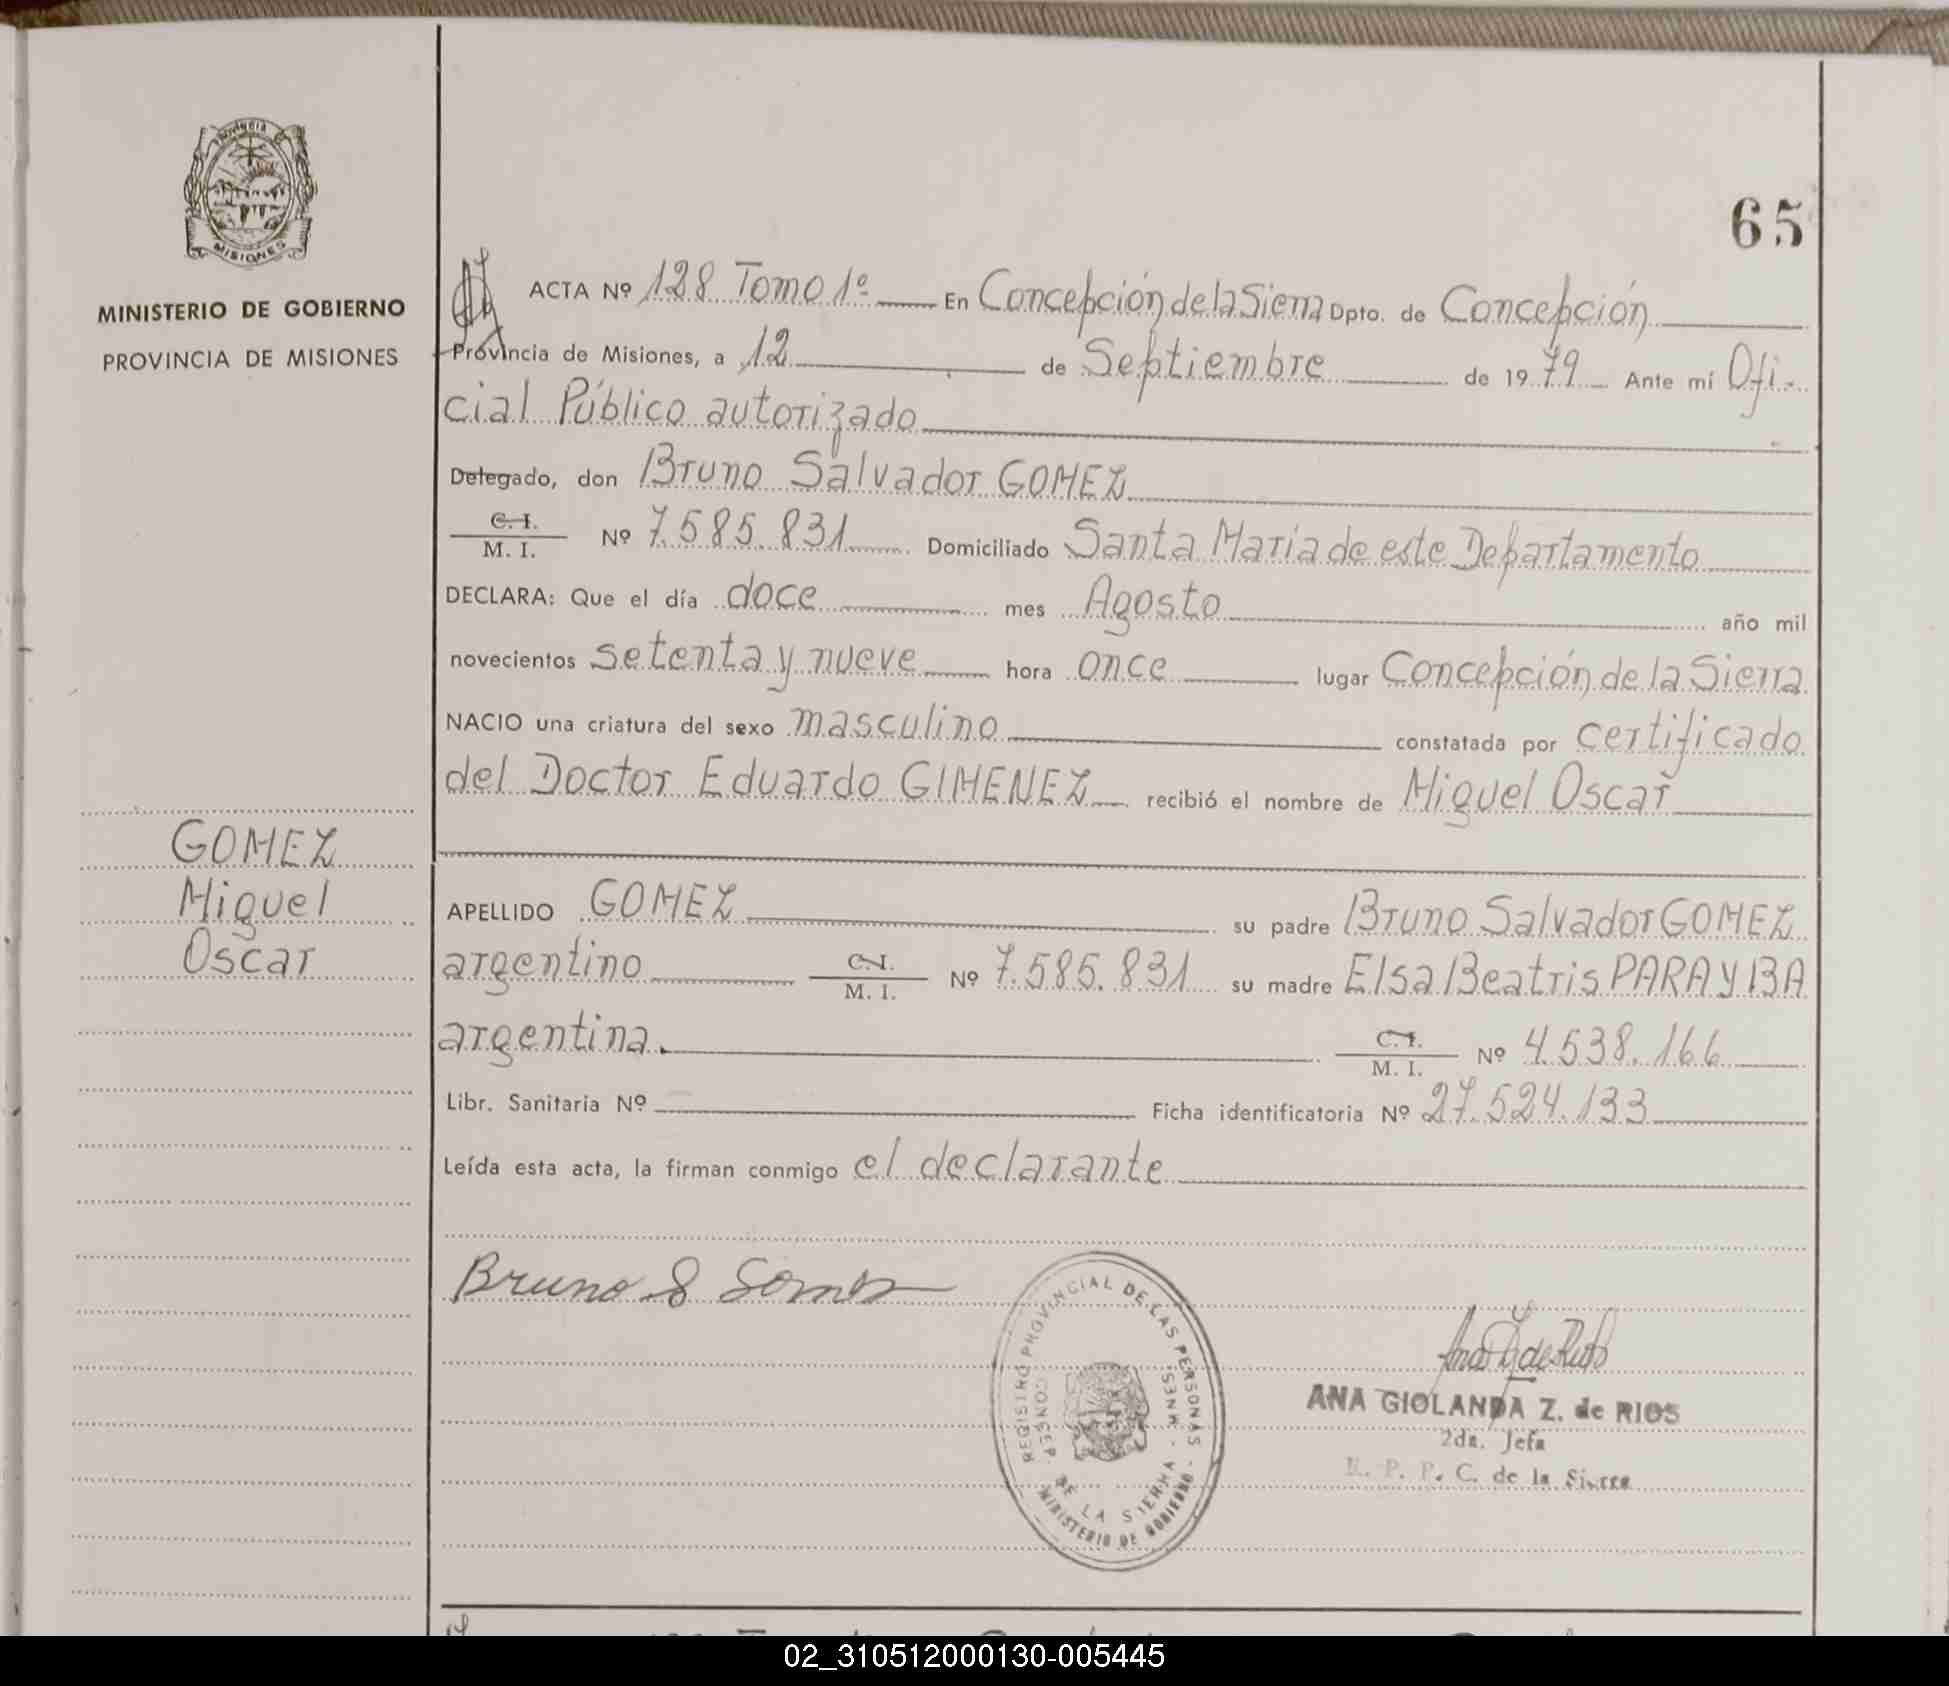 PROVINCIA
MISIONES
MINISTERIO DE GOBIERNO
PROVINCIA DE MISIONES
65
ACTA Nº 128 Tomo 1º En Concepción de la Sierra Dpto. de Concepción
Provincia de Misiones, a 12 de Septiembre de 1979 Ante mí Ofi-
cial Público autorizado
Delegado, don Bruno Salvador GOMEZ
C. I.
M. I. Nº 7.585.831 Domiciliado Santa Maria de este Departamento
DECLARA: Que el día doce mes Agosto año mil
novecientos setenta y nueve hora once lugar Concepción de la Sierra
NACIO una criatura del sexo masculino constatada por certificado
del Doctor Eduardo GIMENEZ recibió el nombre de Miguel Oscar
GOMEZ
Miguel
Oscar
APELLIDO GOMEZ su padre Bruno Salvador GOMEZ
argentino C. I. M. I. Nº 7.585.831 su madre Elsa Beatris PARAYBA
argentina. C. I. M. I. Nº 4.538.166
Libr. Sanitaria Nº Ficha identificatoria Nº 27.524.133
Leída esta acta, la firman conmigo el declarante
Bruno S Gomez
REGISTRO PROVINCIAL DE LAS PERSONAS - MINISTERIO DE GOBIERNO -
CONCEP. DE LA SIERRA - MNES.
ANA GIOLANDA Z. de RIOS
2da. Jefa
R. P. P. C. de la Sierra
02_310512000130-005445